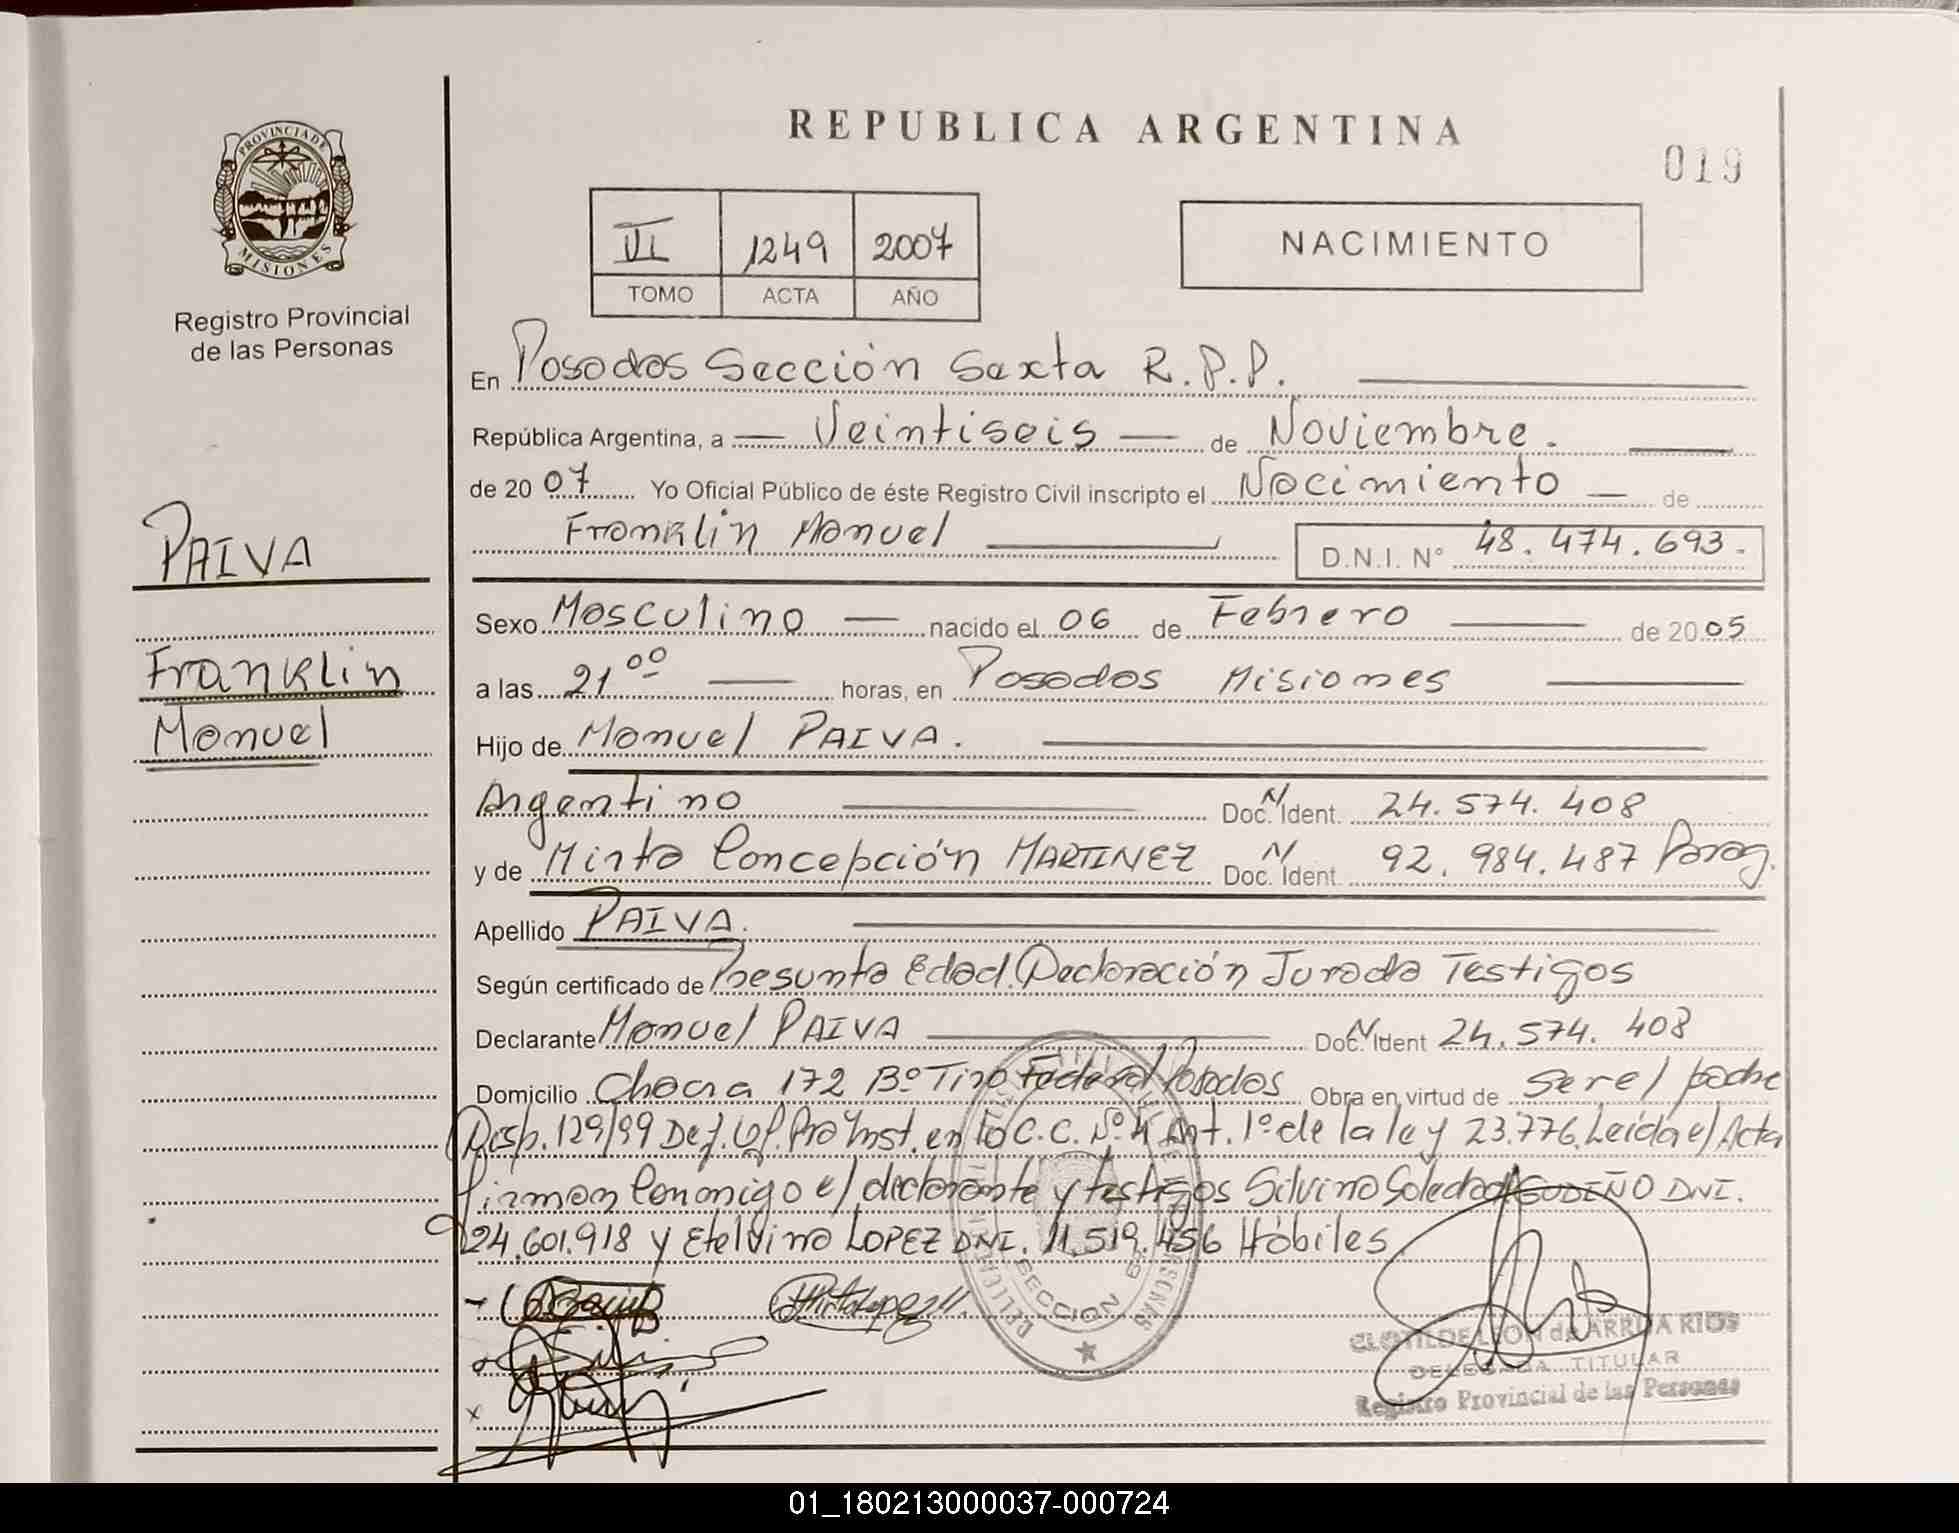 REPUBLICA ARGENTINA
019
PROVINCIA DE
MISIONES
Registro Provincial
de las Personas
VI 1249 2007
TOMO ACTA AÑO
NACIMIENTO
En Posadas Sección Sexta R.P.P.
República Argentina, a Veintiseis de Noviembre.
de 2007 Yo Oficial Público de éste Registro Civil inscripto el Nacimiento de
Franklin Manuel D.N.I. N° 48.474.693.
PAIVA
Franklin
Manuel
Sexo Masculino nacido el 06 de Febrero de 2005
a las 21 00 horas, en Posadas Misiones
Hijo de Manuel PAIVA.
Argentino Doc. N Ident. 24.574.408
y de Mirta Concepción MARTINEZ Doc. N Ident. 92.984.487 Parag.
Apellido PAIVA.
Según certificado de Presunta Edad. Declaración Jurada Testigos
Declarante Manuel PAIVA Doc. N Ident 24.574.408
Domicilio Chacra 172 Bº Tiro Federal Posadas Obra en virtud de ser el padre
Disp. 129/99 Def. Of. Pro Inst. en lo C.C. Nº 4 Art. 1º de la ley 23.776. Leída el Acta
firman Conmigo el declarante y testigos Silvino Soledad GODEÑO DNI.
24.601.918 y Etelvina LOPEZ DNI. 11.519.456 Hábiles
SECCION 6ª
CLOTILDE LEON de ARRUA RIOS
DELEGADA TITULAR
Registro Provincial de las Personas
01_180213000037-000724